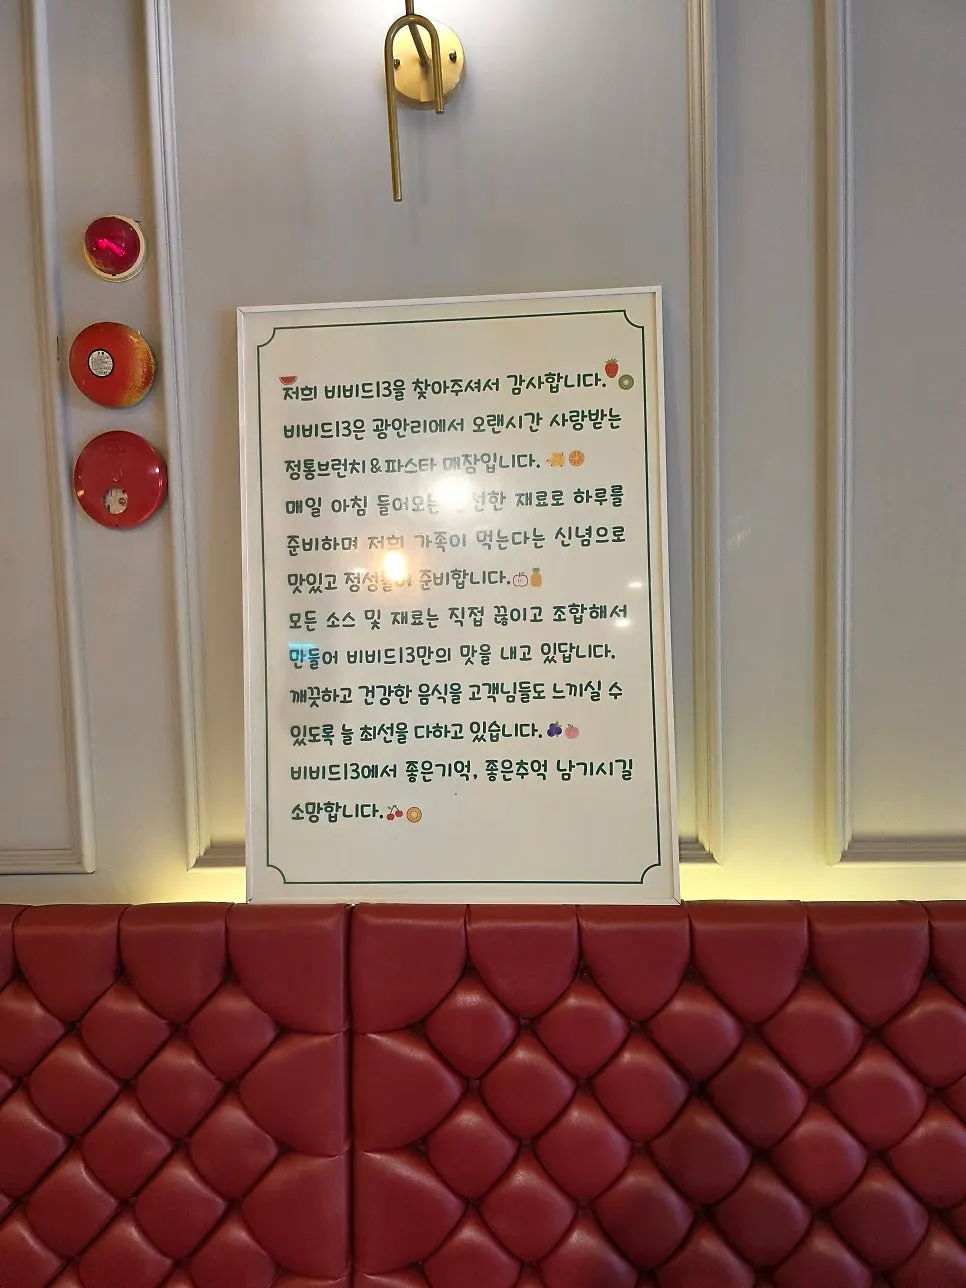 저희 비비드13을 찾아주셔서 감사합니다.
비비드13은 광안리에서 오랜시간 사랑받는
정통브런치&파스타 매장입니다.
매일 아침 들어오는 신선한 재료로 하루를
준비하며 저희 가족이 먹는다는 신념으로
맛있고 정성들여 준비합니다.
모든 소스 및 재료는 직접 끓이고 조합해서
만들어 비비드13만의 맛을 내고 있답니다.
깨끗하고 건강한 음식을 고객님들도 느끼실 수
있도록 늘 최선을 다하고 있습니다.
비비드13에서 좋은기억, 좋은추억 남기시길
소망합니다.